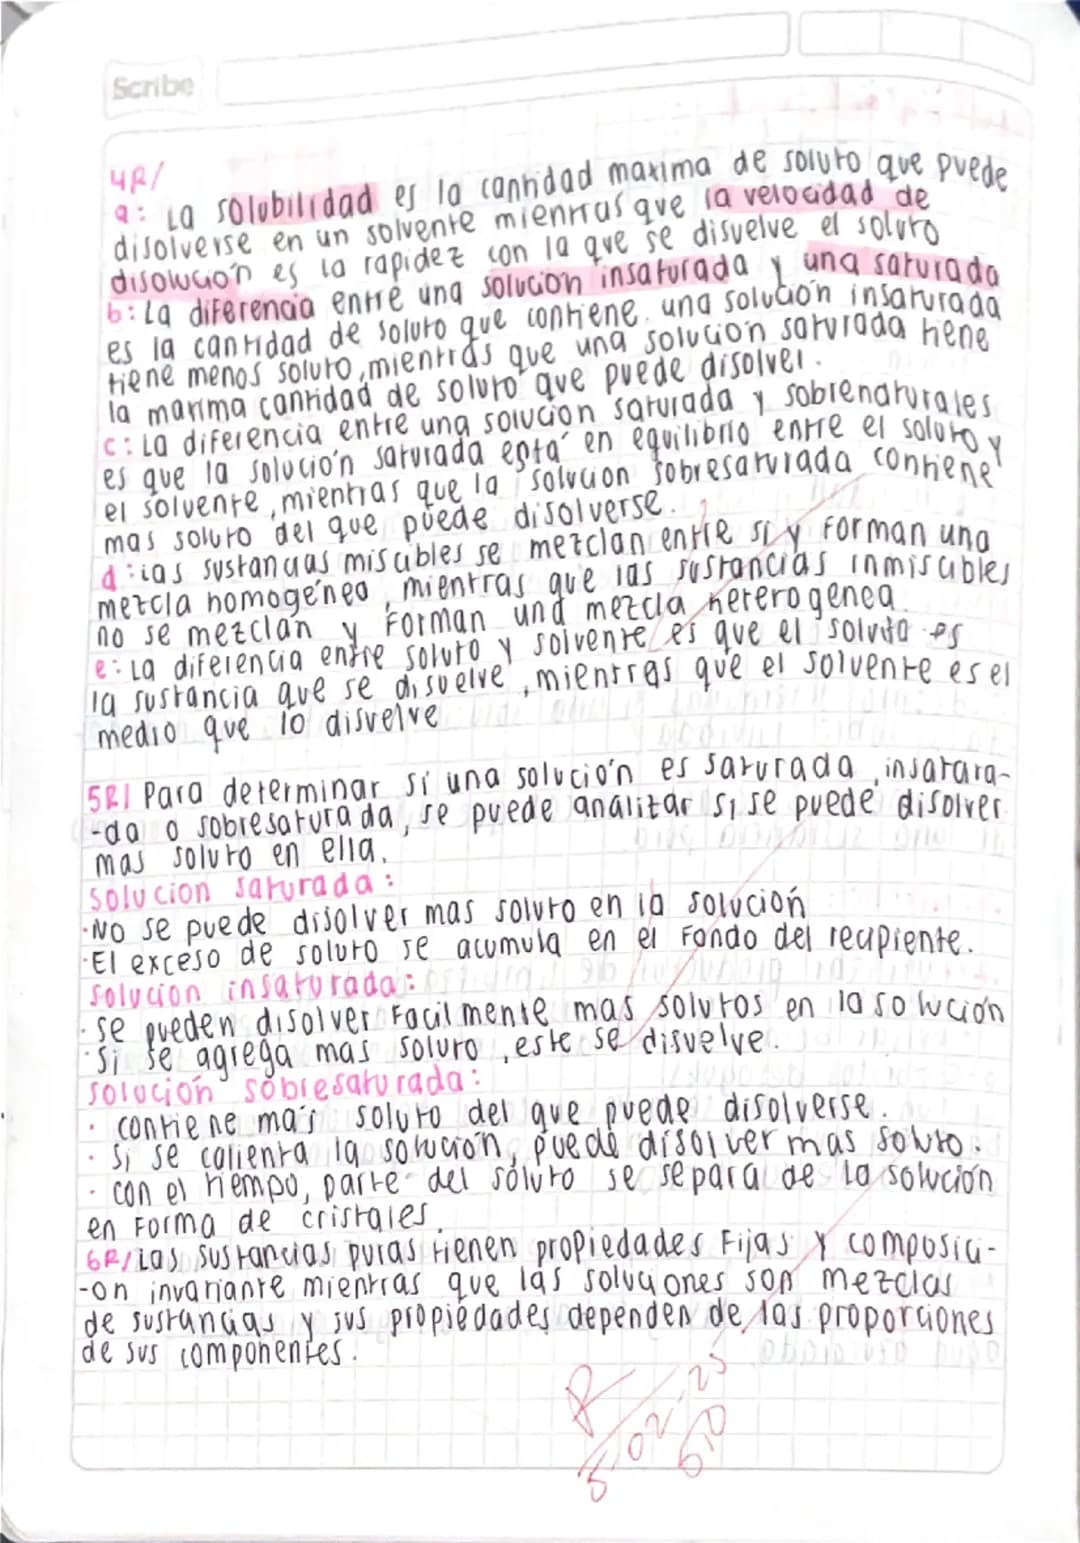 Scribe
4R/
a: La solubilidad es la cantidad maxima de soluto que puede
disolverse en un solvente mientras que la velocidad de
disolución es la rapidez con la que se disuelve el soluto
b: La diferencia entre una solución insaturada y una saturada
es la cantidad de soluto que contiene. una solución insaturada
tiene menos soluto, mientras que una solucion saturada tiene
la maxima cantidad de soluto que puede disolver.
c: La diferencia entre una solucion saturada y sobrenaturales
es que la solución saturada esta en equilibrio entre el soluto y
el solvente, mientras que la solucion sobresaturada contiene
mas soluto del que puede disolverse.
d: las sustancias miscibles se mezclan entre si y forman una
mezcla homogénea, mientras que las sustancias inmiscibles
no se mezclan y Forman una mezcla heterogenea.
e: La diferencia entre soluto y solvente es que el soluto es
la sustancia que se disuelve, mientras que el solvente es el
medio que lo disuelve
5R/ Para determinar si una solución es saturada, insatara-
-da o sobresaturada, se puede analizar si se puede disolver
mas soluto en ella.
solucion saturada:
·No se puede disolver mas soluto en la solución
·El exceso de soluto se acumula en el Fondo del recipiente.
solucion insaturada:
·se pueden disolver Facilmente mas solutos en la solución
·Si se agrega mas soluto, este se disuelve.
solución sobresaturada:
· contiene más soluto del que puede disolverse.
· Si se calienta la solución, puede disolver mas soluto.
· con el tiempo, parte del soluto se separa de la solución
en Forma de cristales.
6R/ las sustancias puras tienen propiedades Fijas y composici-
-on invariante mientras que las soluciones son mezclas
de sustancias y sus propiedades dependen de las proporciones
de sus componentes.
R
5-02-25
5,0